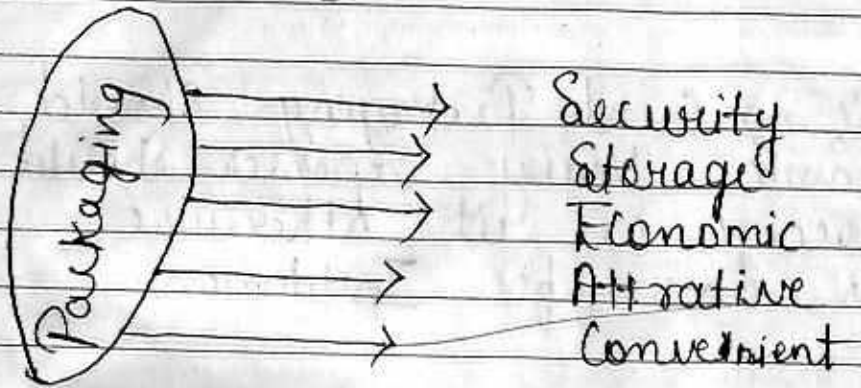 Packaging
Security
Storage
Economic
Attrative
Convenient